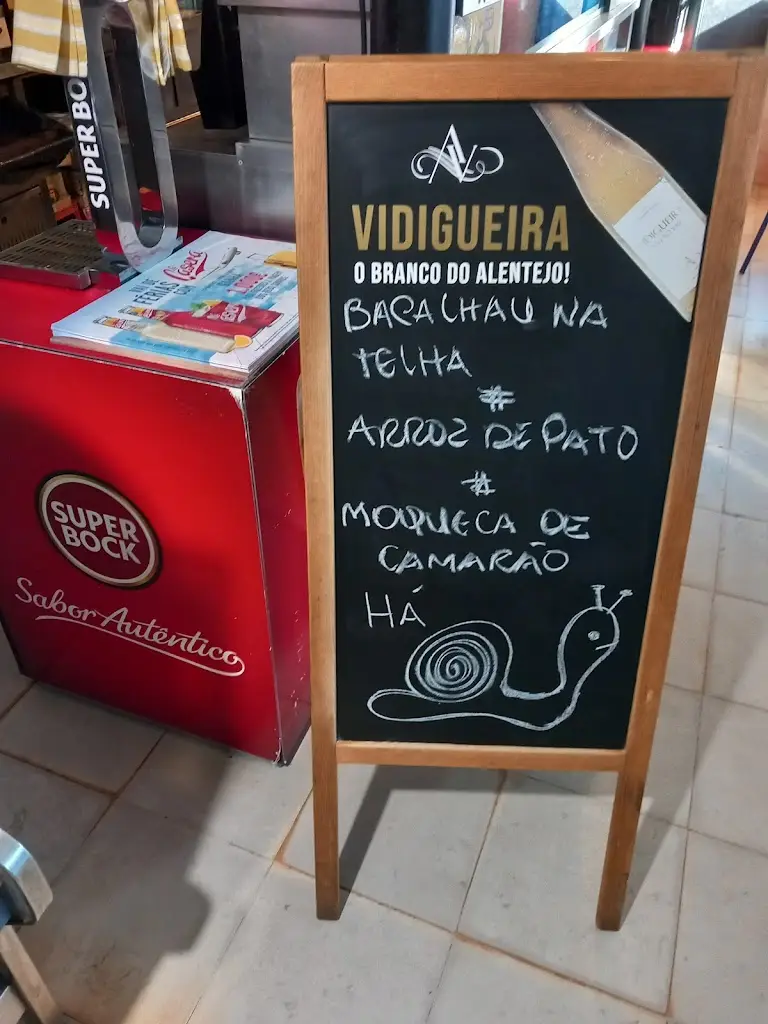 SUPER BO
VAI DE
FÉRIAS
Casera
VIDIGUEIRA
O BRANCO DO ALENTEJO!
BACALHAU NA
TELHA
#
ARROZ DE PATO
#
MOQUECA DE
CAMARÃO
HÁ
SUPER
BOCK
Sabor Autêntico